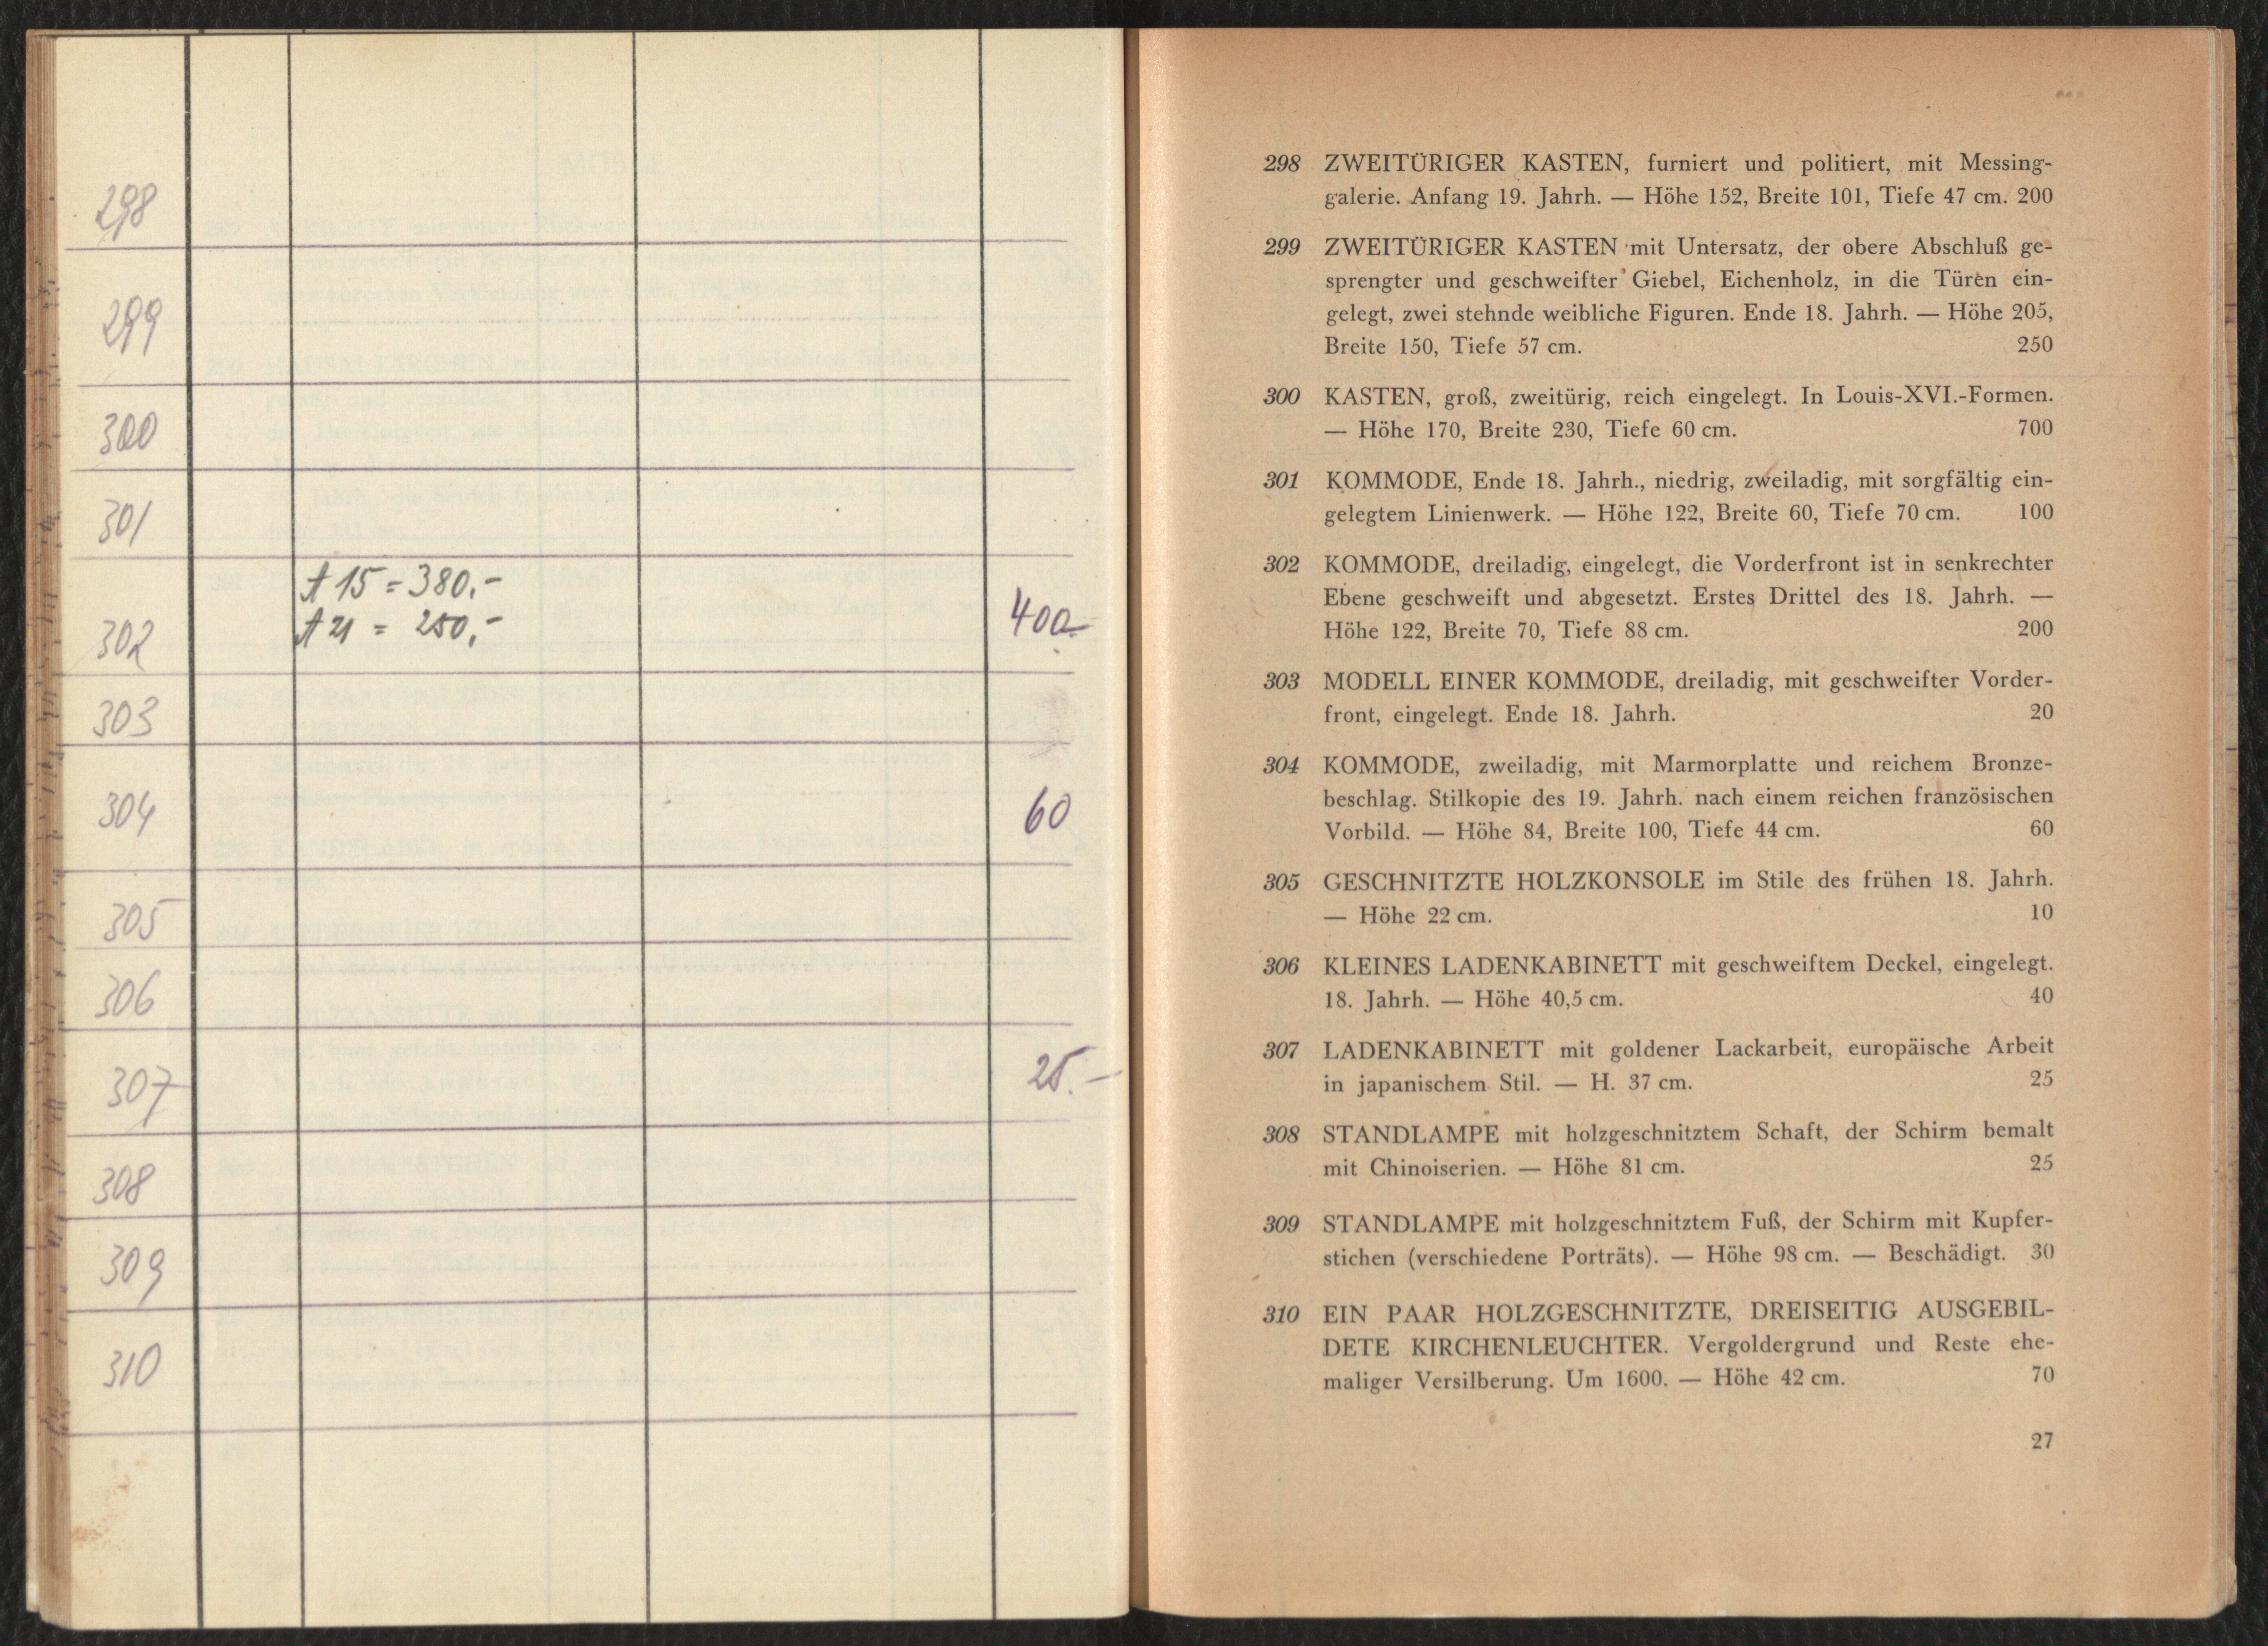 298
299
300
301
A 15 = 380,-
A 21 = 250,-
302 400.-
303
304 60
305
306
307 25.-
308
309
310
298 ZWEITÜRIGER KASTEN, furniert und politiert, mit Messing-
galerie. Anfang 19. Jahrh. — Höhe 152, Breite 101, Tiefe 47 cm. 200
299 ZWEITÜRIGER KASTEN mit Untersatz, der obere Abschluß ge-
sprengter und geschweifter Giebel, Eichenholz, in die Türen ein-
gelegt, zwei stehnde weibliche Figuren. Ende 18. Jahrh. — Höhe 205,
Breite 150, Tiefe 57 cm. 250
300 KASTEN, groß, zweitürig, reich eingelegt. In Louis-XVI.-Formen.
— Höhe 170, Breite 230, Tiefe 60 cm. 700
301 KOMMODE, Ende 18. Jahrh., niedrig, zweiladig, mit sorgfältig ein-
gelegtem Linienwerk. — Höhe 122, Breite 60, Tiefe 70 cm. 100
302 KOMMODE, dreiladig, eingelegt, die Vorderfront ist in senkrechter
Ebene geschweift und abgesetzt. Erstes Drittel des 18. Jahrh. —
Höhe 122, Breite 70, Tiefe 88 cm. 200
303 MODELL EINER KOMMODE, dreiladig, mit geschweifter Vorder-
front, eingelegt. Ende 18. Jahrh. 20
304 KOMMODE, zweiladig, mit Marmorplatte und reichem Bronze-
beschlag. Stilkopie des 19. Jahrh. nach einem reichen französischen
Vorbild. — Höhe 84, Breite 100, Tiefe 44 cm. 60
305 GESCHNITZTE HOLZKONSOLE im Stile des frühen 18. Jahrh.
— Höhe 22 cm. 10
306 KLEINES LADENKABINETT mit geschweiftem Deckel, eingelegt.
18. Jahrh. — Höhe 40,5 cm. 40
307 LADENKABINETT mit goldener Lackarbeit, europäische Arbeit
in japanischem Stil. — H. 37 cm. 25
308 STANDLAMPE mit holzgeschnitztem Schaft, der Schirm bemalt
mit Chinoiserien. — Höhe 81 cm. 25
309 STANDLAMPE mit holzgeschnitztem Fuß, der Schirm mit Kupfer-
stichen (verschiedene Porträts). — Höhe 98 cm. — Beschädigt. 30
310 EIN PAAR HOLZGESCHNITZTE, DREISEITIG AUSGEBIL-
DETE KIRCHENLEUCHTER. Vergoldergrund und Reste ehe-
maliger Versilberung. Um 1600. — Höhe 42 cm. 70
27